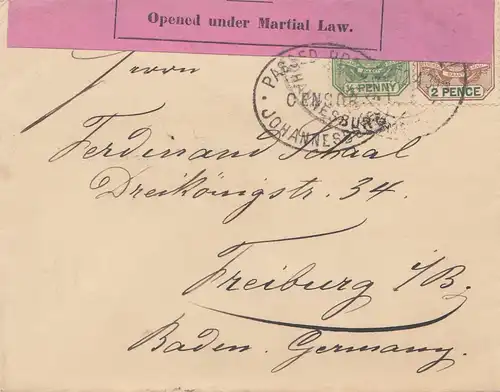 Opened under Martial Law.
PASSED
CENSOR
JOHANNESBURG
JOHANNESBURG
½ PENNY
2 PENCE
Herrn
Ferdinand Schaal
Dreikönigstr. 34.
Freiburg i/B.
Baden. Germany.